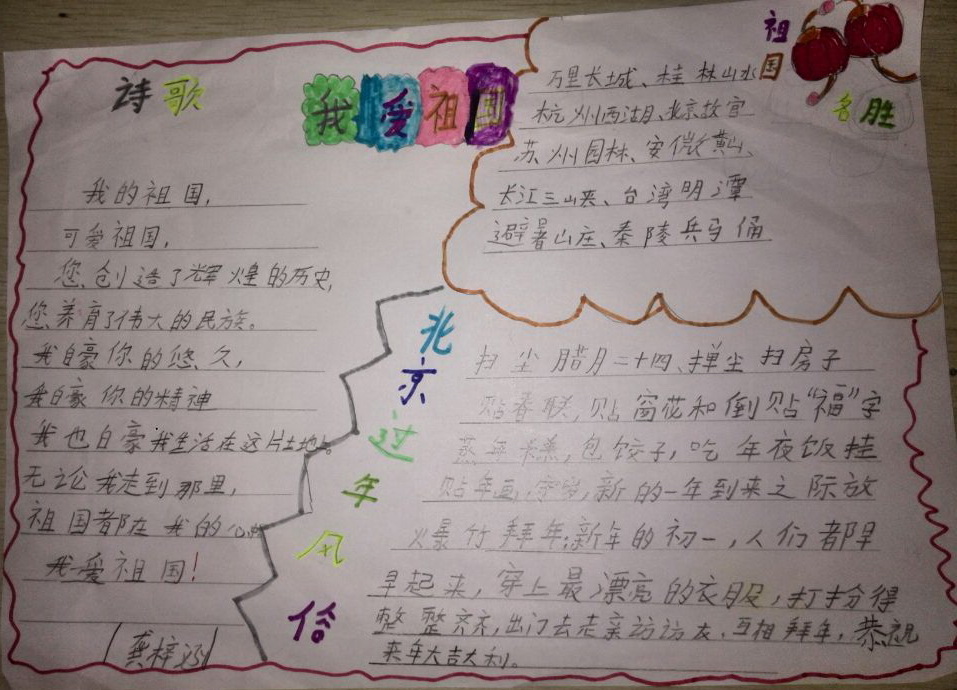 诗歌
我爱祖国
祖国
名胜
万里长城、桂林山水
杭州西湖、北京故宫
苏州园林、安徽黄山、
长江三峡、台湾明潭
避暑山庄、秦陵兵马俑
我的祖国,
可爱祖国,
您创造了辉煌的历史,
您养育了伟大的民族。
我自豪你的悠久,
我自豪你的精神
我也自豪我生活在这片土地。
无论我走到那里,
祖国都在我的心
我爱祖国!
龚梓
北京过年风俗
扫尘腊月二十四、掸尘扫房子
贴春联,贴窗花和倒贴“福”字
蒸年糕,包饺子,吃年夜饭挂
贴年画,守岁,新的一年到来之际放
爆竹拜年:新年的初一,人们都早
早起来,穿上最漂亮的衣服,打扮得
整整齐齐,出门去走亲访访友.互相拜年,恭祝
来年大吉大利。